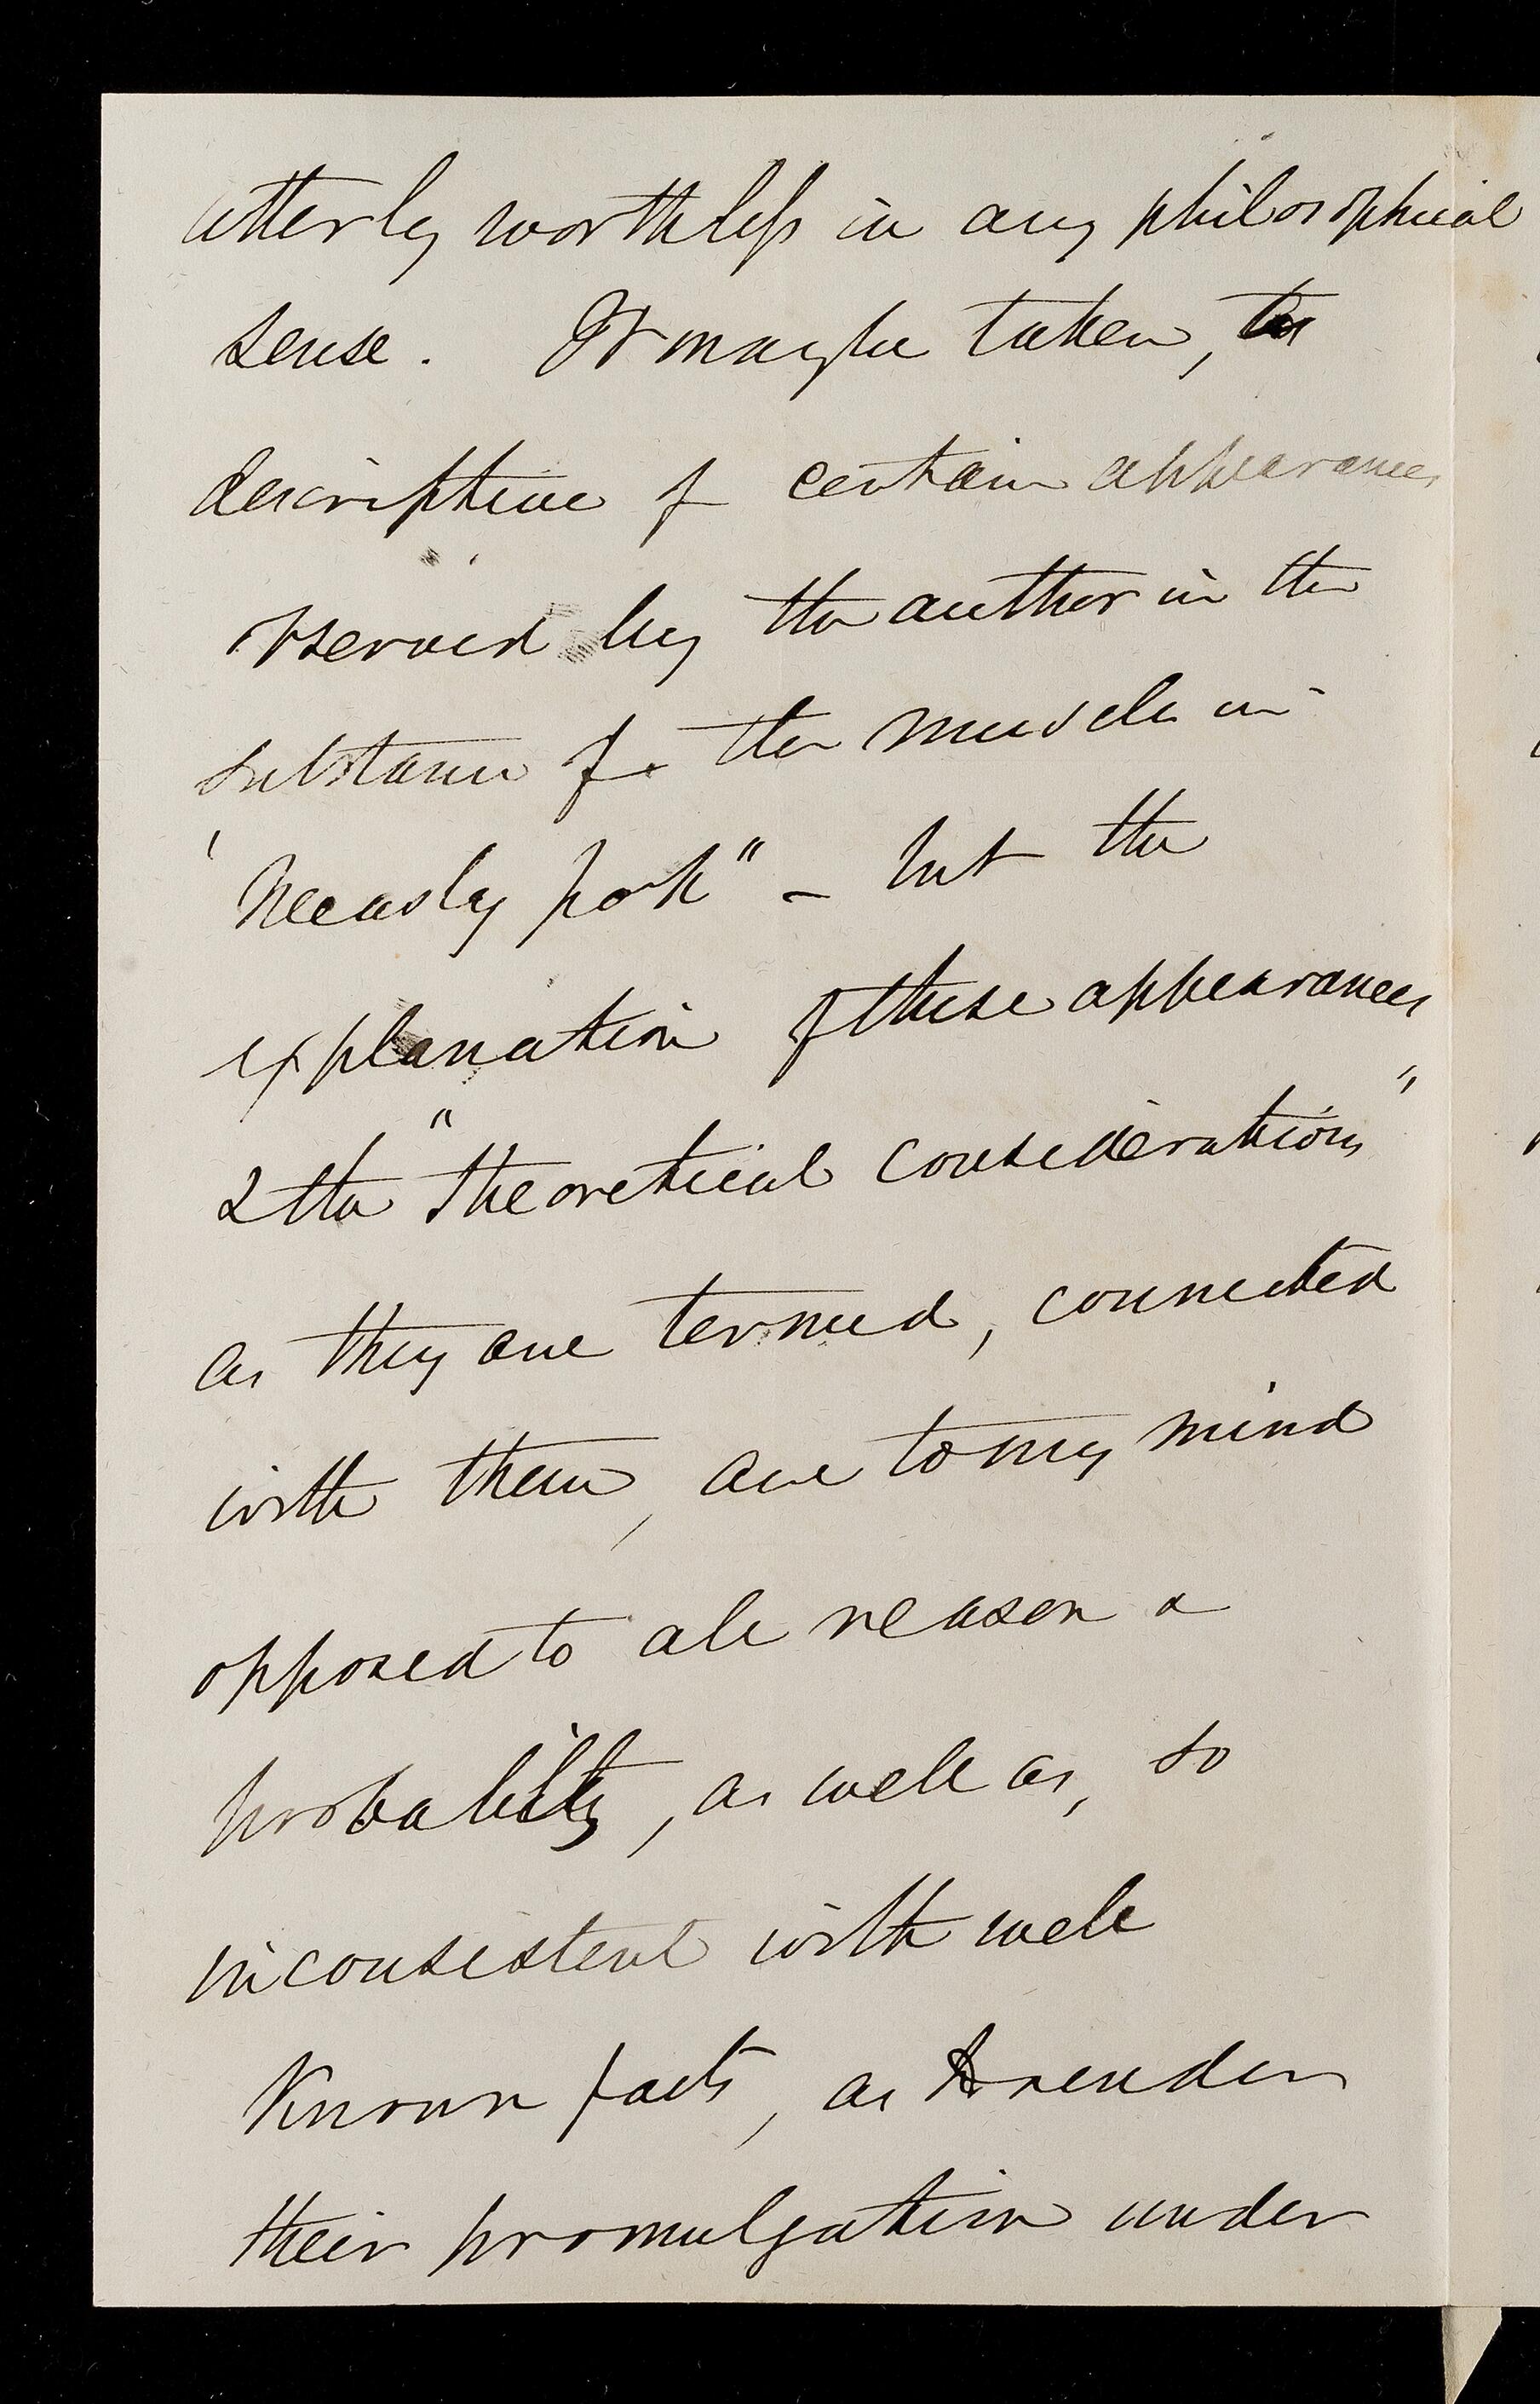 utterly worthless in any philosophical
sense. It may be taken, as
descriptive of certain appearances
observed by the author in the
substance of the muscle in
"Measly pork" – but the
explanation of these appearances
& the "theoretical considerations"
as they are termed, connected
with them, are to my mind
opposed to all reason &
probability, as well as, so
inconsistent with well
Known facts, as to render
their promulgation under